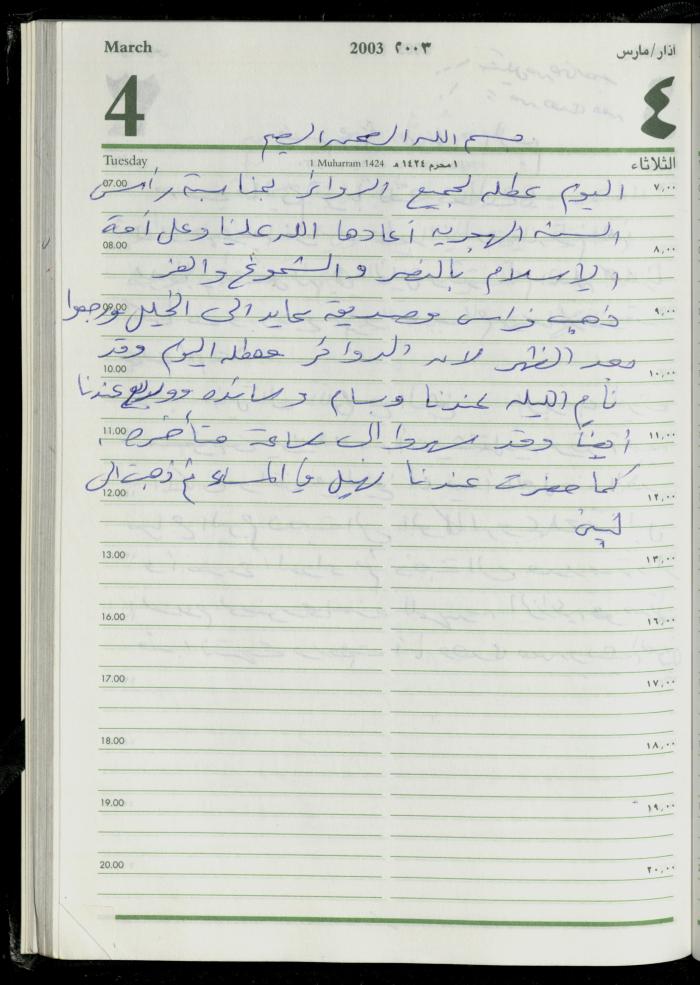 March 2003 ٢٠٠٣ اذار/مارس
4 ٤
بسم الله الرحمن الرحيم
Tuesday 1 Muharram 1424 ١ محرم ١٤٢٤ هـ الثلاثاء
07.00 اليوم عطله لجميع الدوائر بمناسبة رأس ٧,٠٠
السنه الهجريه أعادها الله علينا وعلى أمة
08.00 ٨,٠٠
الإسلام بالنصر والشموخ والعز
09.00 ذهب فراس وصديقه عايد الى الخليل ورجعوا ٩,٠٠
بعد الظهر لان الدوائر معطله اليوم وقد
10.00 ١٠,٠٠
نام الليله عندنا وسام وسائده ووديع عندنا
11.00 أيضاً وقد سهروا الى ساعة متأخره. ١١,٠٠
كما حضرت عندنا نهيل في المساء ثم ذهبت الى
12.00 ١٢,٠٠
13.00 ١٣,٠٠
16.00 ١٦,٠٠
17.00 ١٧,٠٠
18.00 ١٨,٠٠
19.00 ١٩,٠٠
20.00 ٢٠,٠٠